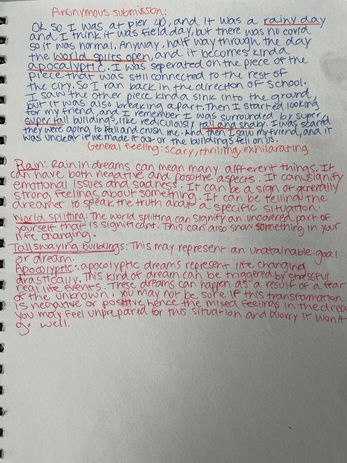 Anonymous submission:
Ok so I was at pier 40, and it was a rainy day
and I think it was field day, but there was no covid
so it was normal. Anyway, half way through the day
the world splits open, and it becomes kinda
apocalyptic. I was seperated on the piece of the
piece that was still connected to the rest of
the city. So I ran back in the direction of school.
I saw the other piece kinda sink into the ground,
but it was also breaking apart. Then I started looking
for my friend, and I remember I was surrounded by super
super tall buildings, like rediculously tall and shaky. I was scared
they were going to fall and crush me. And then I saw my friend, and it
was unclear if we made it out or the buildings fell on us.
General feeling: scary, thrilling, exhilarating
Rain: Rain in dreams can mean many different things. It
can have both negative and positive aspects. It can signify
emotional issues and sadness. It can be a sign of generally
strong feelings about something. It can be telling the
dreamer to speak the truth about a specific situation.
World splitting: The world splitting can signify an uncovered part of
yourself that is significant. This can also show something in your
life changing.
Tall swaying buildings: This may represent an unattainable goal
or dream.
Apocalyptic: apocalyptic dreams represent life changing
drastically. This kind of dream can be triggered by stressful
real life events. These dreams can happen as a result of a fear
of the unknown, you may not be sure if this transformation
is negative or positive, hence the mixed feelings in the dream
You may feel unprepared for this situation and worry it won't
go well.